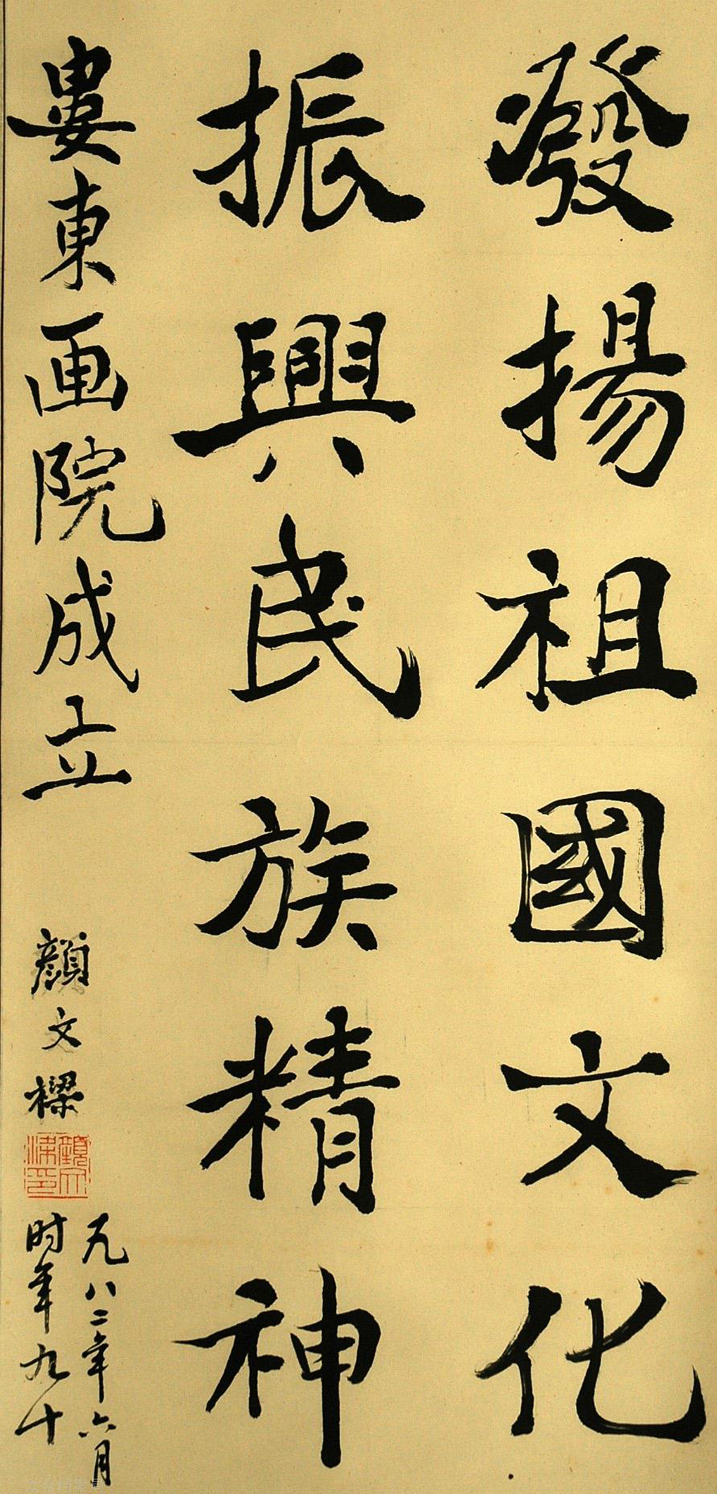 發揚祖國文化
振興民族精神
婁東画院成立
顏文樑
一九八二年六月
时年九十